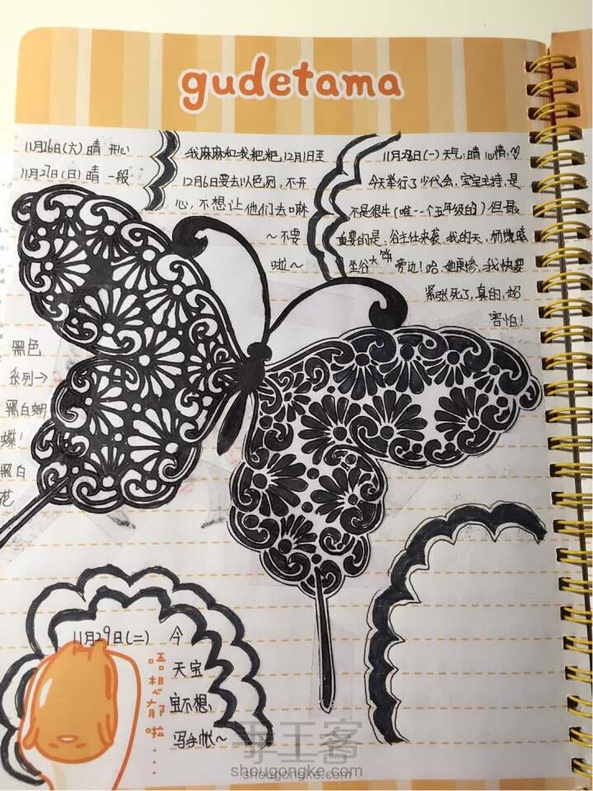 gudetama
11月26日(六) 晴 开心
11月27日(日) 晴 一般
我麻麻和我粑粑,12月1日至
12月6日要去以色列,不开
心,不想让他们去嘛
~不要
啦~
11月28日(一) 天气:晴 心情:
今天举行了少代会,宝宝主持,是
不是很牛(唯一个五年级的)但最
重要的是,谷主任来袭,我的天,
坐谷大 旁边!哈,她更惨,我快要
紧张死了,真的,超
害怕!
黑色
系列→
黑白蝴
蝶!
黑白
花
11月29日(二) 今
天宝
宝不想
写手帐~
唔想有啦....
手工客
shougongke.com
shougongke.com